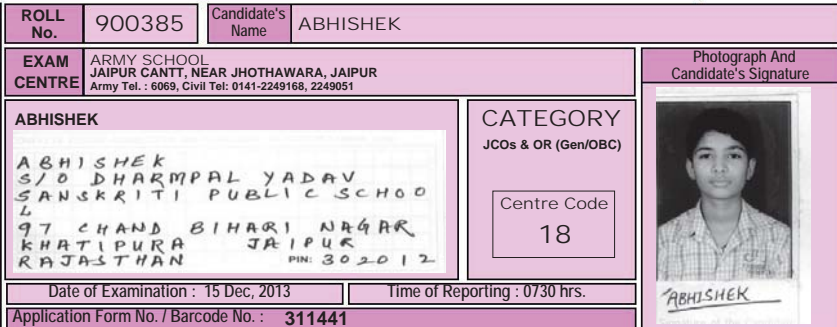 ROLL No. 900385 Candidate's Name ABHISHEK
EXAM CENTRE
ARMY SCHOOL
JAIPUR CANTT, NEAR JHOTHAWARA, JAIPUR
Army Tel. : 6069, Civil Tel: 0141-2249168, 2249051
Photograph And
Candidate's Signature
ABHISHEK
ABHISHEK
S/O DHARMPAL YADAV
SANSKRITI PUBLIC SCHOO
L
97 CHAND BIHARI NAGAR
KHATIPURA JAIPUR
RAJASTHAN PIN: 302012
CATEGORY
JCOs & OR (Gen/OBC)
Centre Code
18
ABHISHEK
Date of Examination : 15 Dec, 2013 Time of Reporting : 0730 hrs.
Application Form No. / Barcode No. : 311441